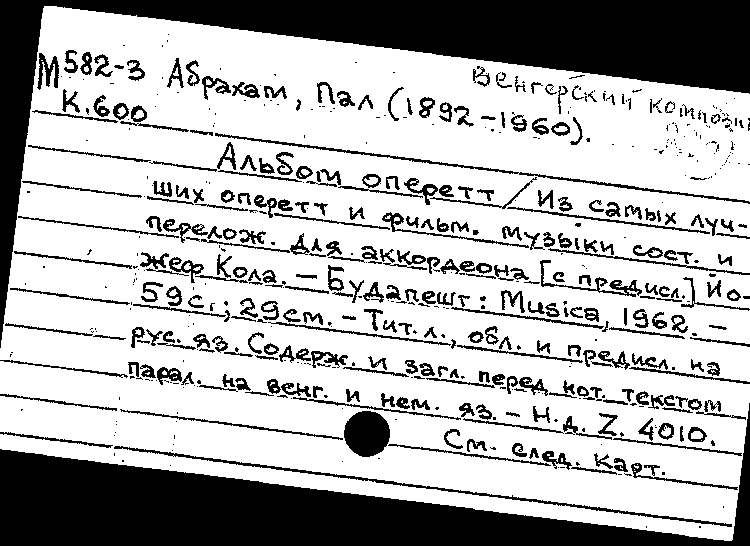 Венгерский композит
М582-3 Абрахам, Пал (1892-1960).
К.600
Альбом оперетт / Из самых луч-
ших оперетт и фильм. музыки сост. и
перелож. для аккордеона [с предисл.] Йо-
жеф Кола. – Будапешт: Musica, 1962. –
59с.; 29см. – Тит. л., обл. и предисл. на
рус. яз. Содерж. и загл. перед нот. текстом
парал. на венг. и нем. яз. – Н.д. Z. 4010.
См. след. карт.